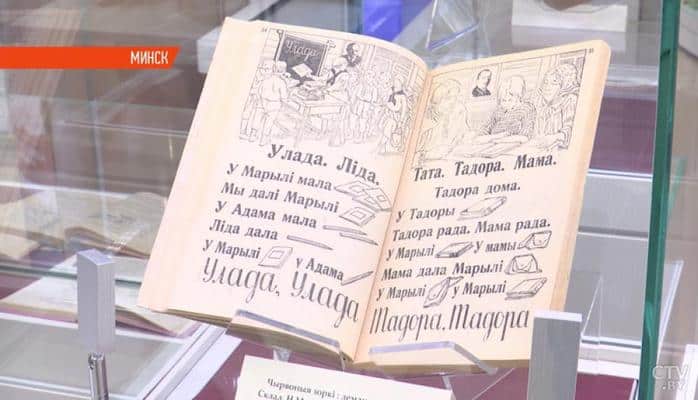 МИНСК
34
Улада
Улада. Ліда.
У Марылі мала
Мы далі Марылі
У Адама мала
Ліда дала
У Марылі у Адама
Улада, Улада
35
Тата. Тадора. Мама.
Тадора дома.
У Тадоры
Тадора рада. Мама рада.
У Марылі У мамы
Мама дала Марылі
У Марылі у Марылі
Тадора. Тадора
Чырвоныя зоркі :
Склад.
CTV
.BY